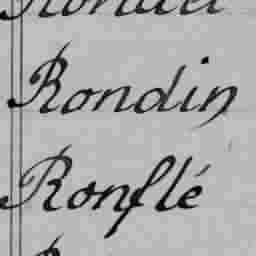 Rondin
Ronflé